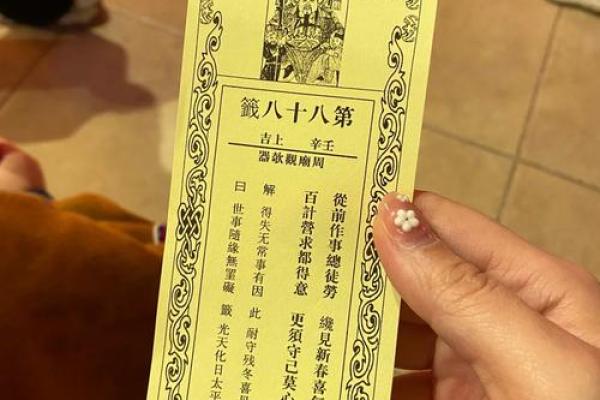 第八十八籤
壬辛 上吉
周廟觀欹器
從前作事總徒勞 纔見新春喜
百計營求都得意 更須守己莫心
解 得失无常事有因 此 耐守残冬喜
曰 世事隨緣無罣礙 籤 光天化日太平